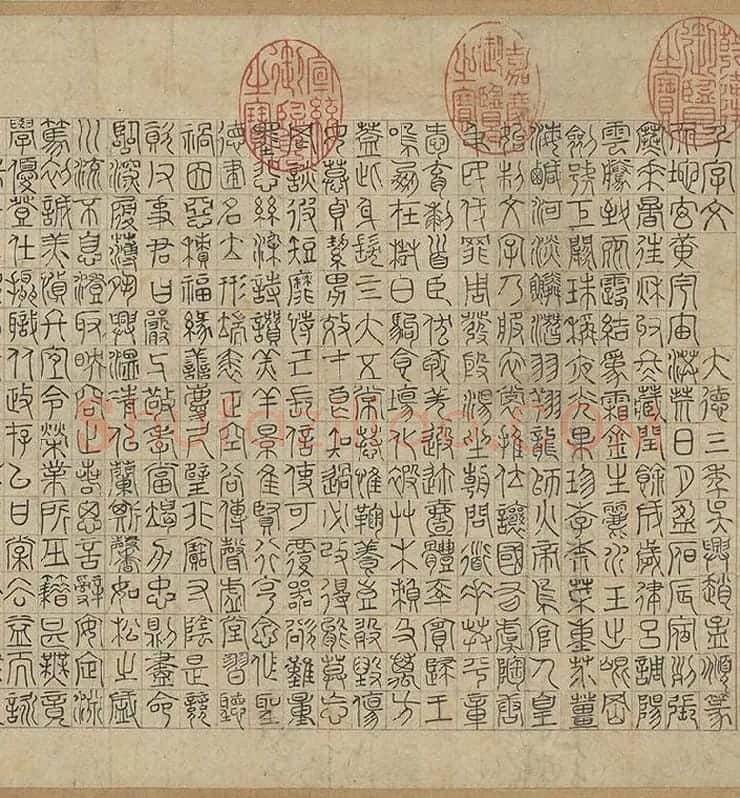 千字文 大德三年吳興趙孟頫篆
天地玄黃宇宙洪荒日月盈昃辰宿列張
寒來暑往秋收冬藏閏餘成歲律呂調陽
雲騰致雨露結為霜金生麗水玉出崑岡
劍號巨闕珠稱夜光果珍李柰菜重芥薑
海鹹河淡鱗潛羽翔龍師火帝鳥官人皇
始制文字乃服衣裳推位讓國有虞陶唐
弔民伐罪周發殷湯坐朝問道垂拱平章
愛育黎首臣伏戎羌遐邇壹體率賓歸王
鳴鳳在樹白駒食場化被草木賴及萬方
蓋此身髮四大五常恭惟鞠養豈敢毀傷
女慕貞潔男效才良知過必改得能莫忘
罔談彼短靡恃己長信使可覆器欲難量
墨悲絲染詩讚羔羊景行維賢克念作聖
德建名立形端表正空谷傳聲虛堂習聽
禍因惡積福緣善慶尺璧非寶寸陰是競
資父事君曰嚴與敬孝當竭力忠則盡命
臨深履薄夙興溫凊似蘭斯馨如松之盛
川流不息澄取映容止若思言辭安定
篤初誠美慎終宜令榮業所基籍甚無竟
學優登仕攝職從政存以甘棠去而益詠
嘉慶御覽之寶
宣統御覽之寶